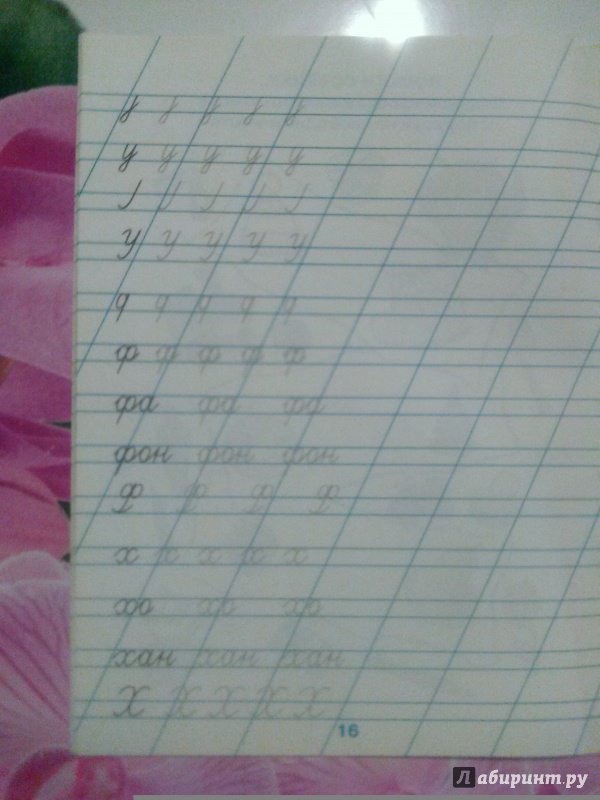 у у у у у
У У У У У
ф ф ф ф ф
фа фа фа
фон фон фон
Ф Ф Ф Ф
х х х х х
хо хо хо
хан хан хан
Х Х Х Х Х
16
Лабиринт.ру